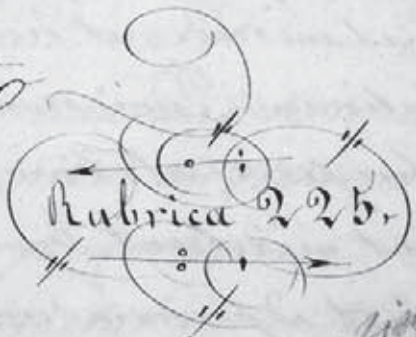 Rubrica 225.